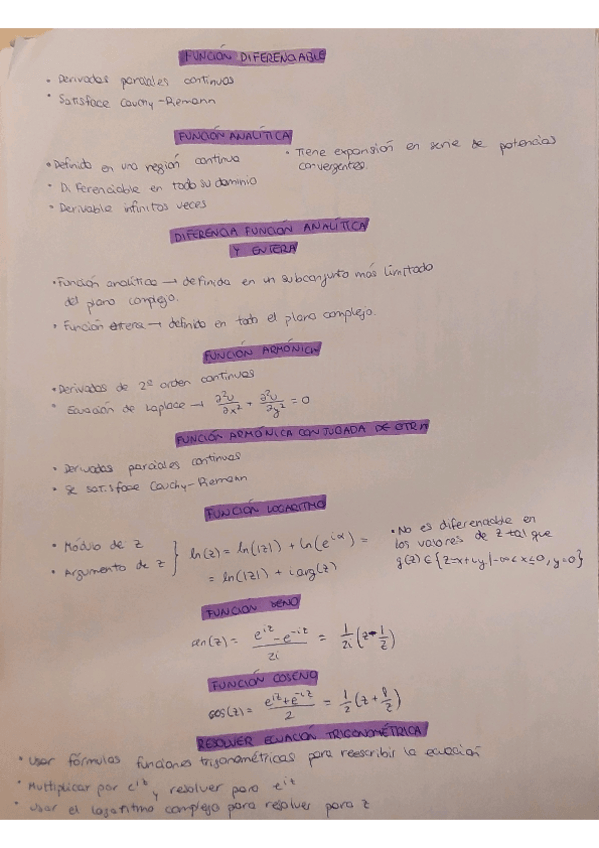 FUNCIÓN DIFERENCIABLE
• Derivadas parciales continuas
• Satisface Cauchy-Riemann
FUNCIÓN ANALÍTICA
• Definida en una región continua
• Diferenciable en todo su dominio
• Derivable infinitas veces
• Tiene expansión en serie de potencias
convergentes.
DIFERENCIA FUNCIÓN ANALÍTICA
Y ENTERA
• Función analítica → definida en un subconjunto más limitado
del plano complejo.
• Función entera → definida en todo el plano complejo.
FUNCIÓN ARMÓNICA
• Derivadas de 2º orden continuas
• Ecuación de Laplace → ∂²U/∂x² + ∂²U/∂y² = 0
FUNCIÓN ARMÓNICA CONJUGADA DE OTRA
• Derivadas parciales continuas
• Se satisface Cauchy-Riemann
FUNCIÓN LOGARITMO
• Módulo de z
• Argumento de z
} ln(z) = ln(|z|) + ln(e^{iα}) =
= ln(|z|) + i arg(z)
• No es diferenciable en
los valores de z tal que
g(z) ∈ {z=x+iy | -∞<x≤0, y=0}
FUNCIÓN SENO
sen(z) = (e^{iz} - e^{-iz})/2i = 1/2i (z - 1/z)
FUNCIÓN COSENO
cos(z) = (e^{iz} + e^{-iz})/2 = 1/2 (z + 1/z)
RESOLVER ECUACIÓN TRIGONOMÉTRICA
• Usar fórmulas funciones trigonométricas para reescribir la ecuación
• Multiplicar por e^{iz} y resolver para e^{iz}
• Usar el logaritmo complejo para resolver para z